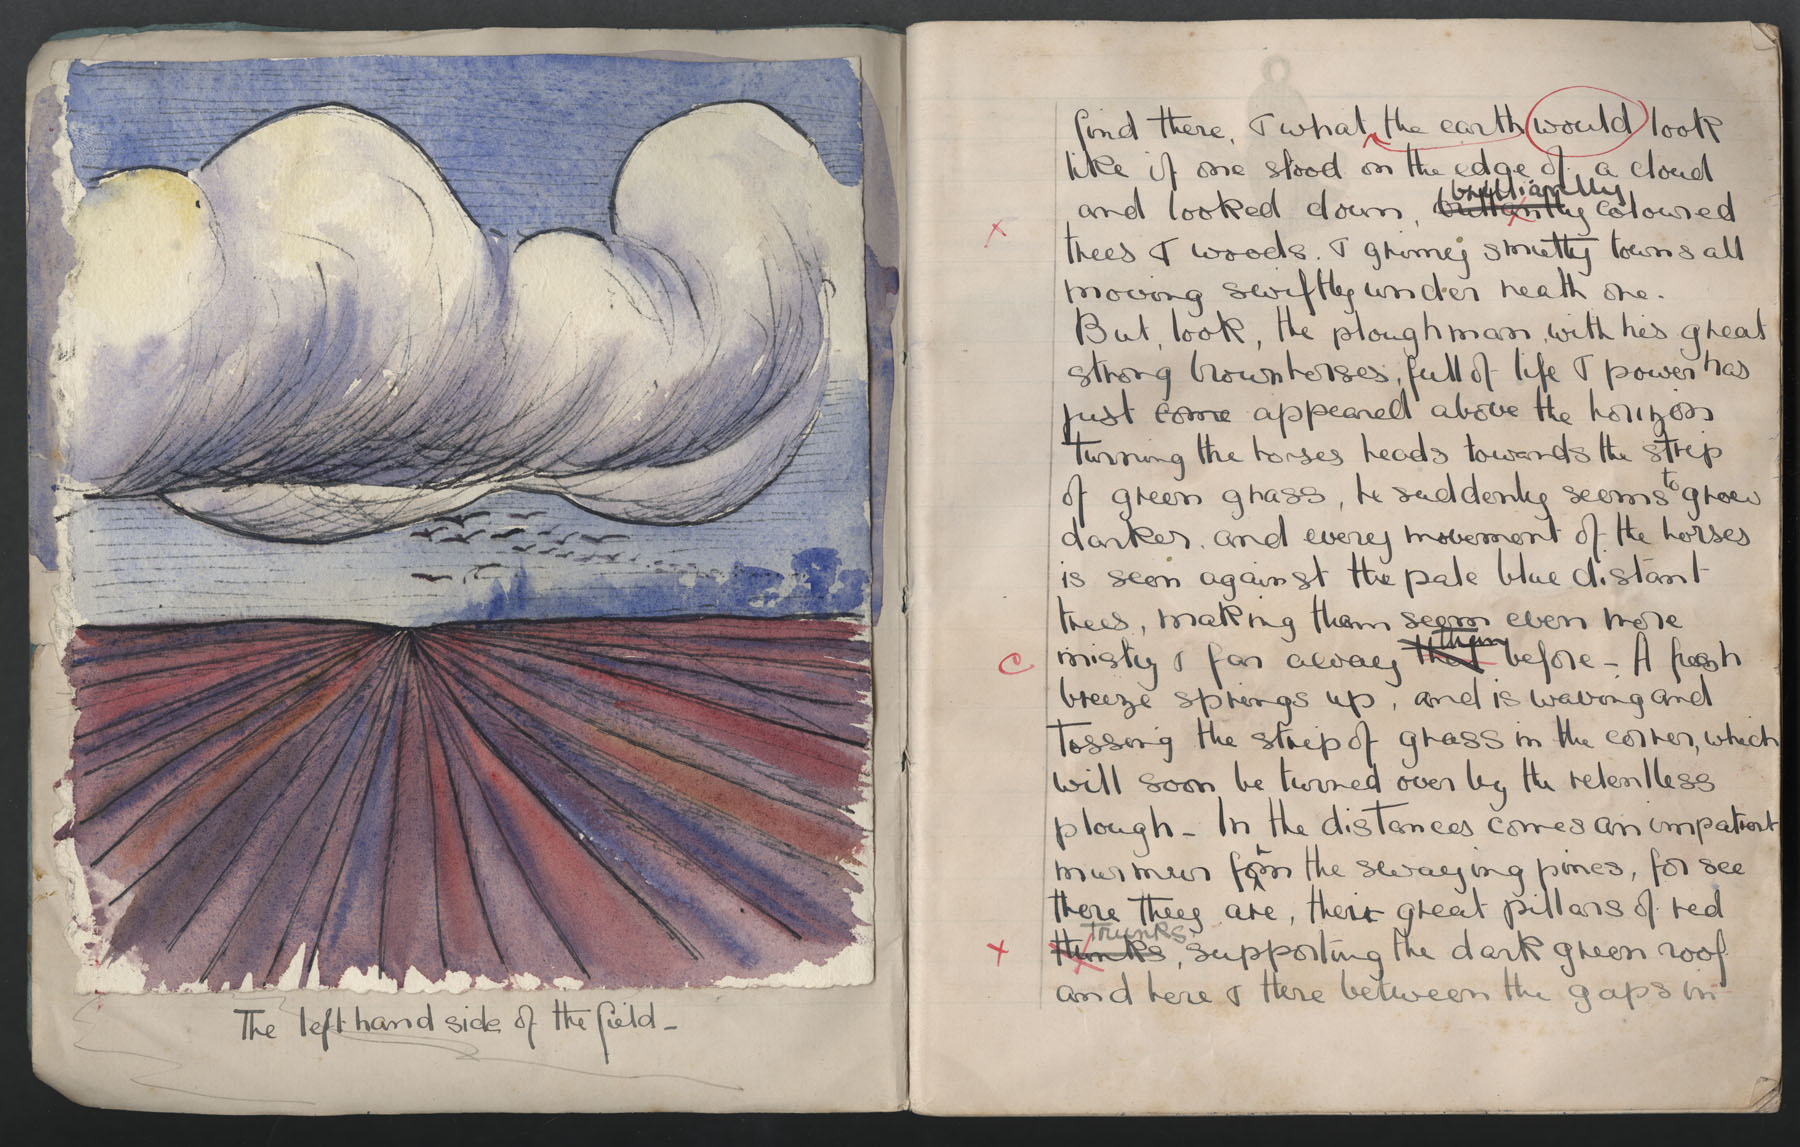 The left hand side of the field -
find there, & what the earth would look
like if one stood on the edge of a cloud
and looked down, brilliantly coloured
trees & woods. & grimey smutty towns all
moving swiftly under neath one.
But, look, the ploughman, with his great
strong brown horses, full of life & power has
just come appeared above the horizon
Turning the horses heads towards the strip
of green grass, he suddenly seems to grow
darker. and every movement of the horses
is seen against the pale blue distant
trees, making tham seem even more
misty & far away then before - A fresh
breeze springs up, and is waving and
Tossing the strip of grass in the corner, which
will soon be turned over by the relentless
plough - In the distances comes an impatient
murmur from the swaying pines, for see
there they are, their great pillars of red
trunks, supporting the dark green roof
and here & there between the gaps in